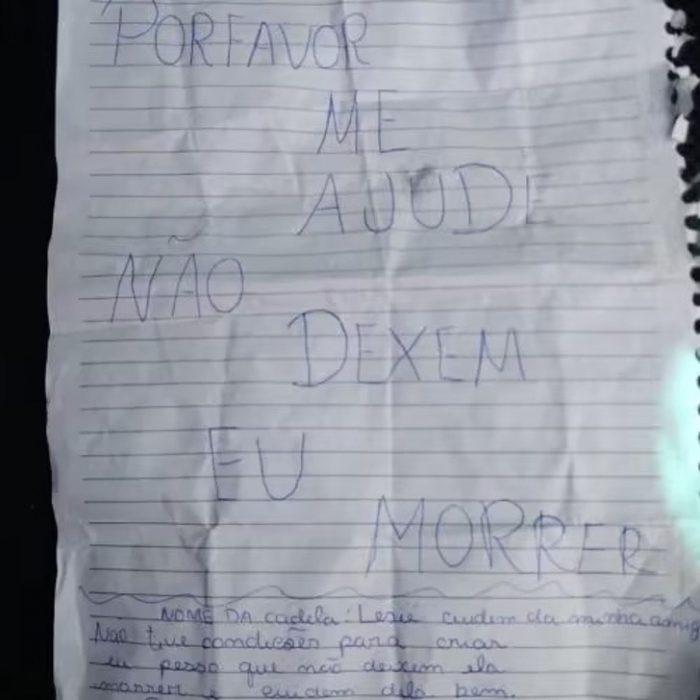 PORFAVOR
ME
AJUDE
NÃO
DEXEM
EU
MORRER
NOME DA cadela: cuidem da minha amig
Não tive condições para criar
eu pesso que não deixem ela
morrer e cuidem dela bem